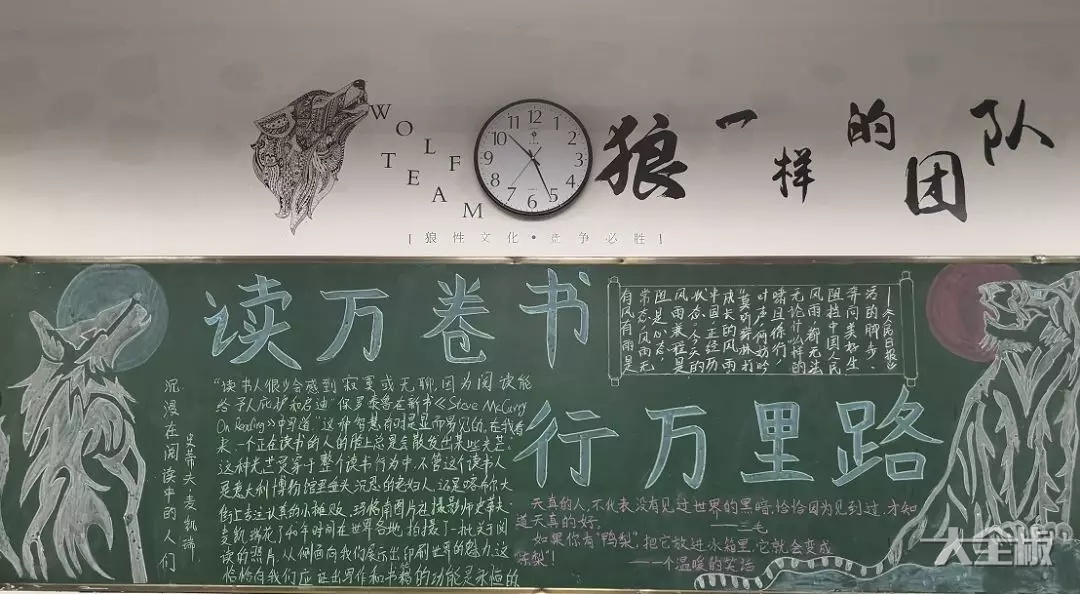 WOLF
TEAM
12
1
2
3
4
5
6
7
8
9
10
11
狼一样的团队
[狼性文化·竞争必胜]
读万卷书
行万里路
沉浸在阅读中的人们
史蒂夫麦凯瑞
“读书人很少会感到寂寞或无聊,因为阅读能
给予人庇护和启迪”保罗索鲁在新书《Steve McCurry
On Reading》中写道,“这种智慧有时是显而易见的,在我看
来,一个正在读书的人的脸上总是会散发出某些光芒”
这种光芒贯穿于整个读书行为中,不管这个读书人
是意大利博物馆里垂头沉思的老妇人,还是喀布尔大
街上专注认真的小摊贩,玛格南图片社摄影师史蒂夫
麦凯瑞花了40年时间在世界各地,拍摄了一批关于阅
读的照片,从侧面向我们展示出印刷世界的魅力,这
恰恰向我们应证出写作和书籍的功能是永恒的
有风有雨是
常态,风雨无
阻是心态,
风雨兼程是
状态。今天的
中国,正经历
成长的风雨
“莫听穿林打
叶声,何妨吟
啸且徐行”
无论什么样的
风雨,都无法
阻挡中国人民
奔向美好生
活的脚步。
——《人民日报》
天真的人,不代表没有见过世界的黑暗,恰恰因为见到过,才知
道天真的好。
——三毛
如果你有“鸭梨”,把它放进冰箱里,它就会变成
“冻梨”!
——一个温暖的笑话
大全板